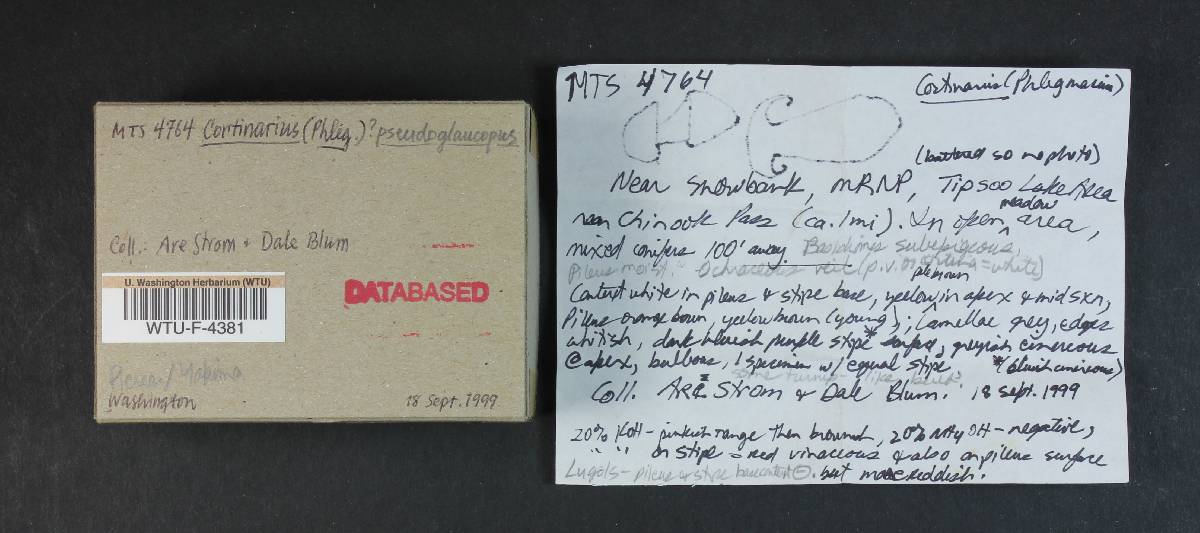 MTS 4764 Cortinarius (Phleg.)? pseudoglaucopus
Coll.: Are Strom & Dale Blum
U. Washington Herbarium (WTU)
WTU-F-4381
DATABASED
Pierce/Yakima
Washington
18 Sept. 1999
MTS 4764
Cortinarius (Phlegmacium)
(battered so no photo)
Near snowbank, MRNP, Tipsoo Lake Area
near Chinook Pass (ca. 1 mi). In open meadow area,
mixed conifers 100' away. Basidiomes subepigeous,
Pileus moist. Ochraceous veil (p.v. on = white)
Context white in pileus & stipe base, yellow in apex & mid sxn,
Pileus orange brown, yellow brown (young); Lamellae grey, edges
whitish, dark bluish purple stipe* surface, greyish cinereous
@ apex, bulbous, 1 specimen w/ equal stipe *(bluish cinereous)
some turnip-like bulb
Coll. Are Strom & Dale Blum. 18 Sept. 1999
20% KOH - pinkish range then brownish, 20% NH4OH - negative,
" " on stipe = red vinaceous & also on pileus surface
Lugols - pileus & stipe base context ⊖. but more reddish.